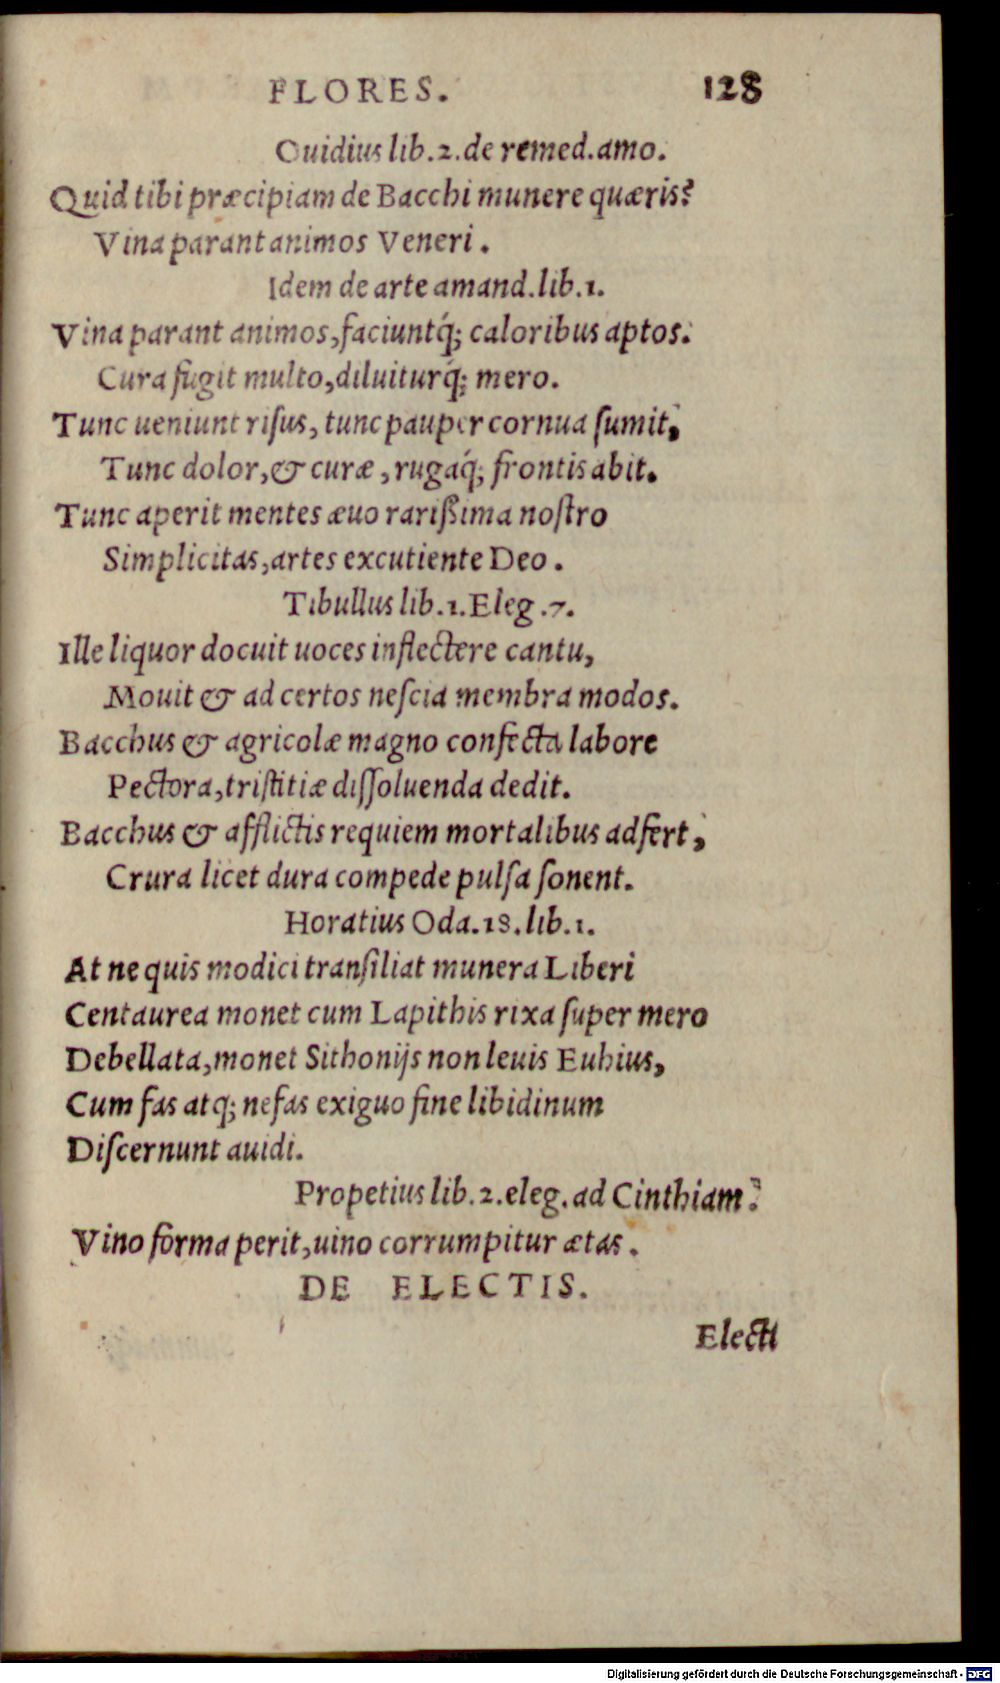 FLORES. 128
Ouidius lib.2.de remed.amo.
Quid tibi præcipiam de Bacchi munere quæris?
Vina parant animos Veneri.
Idem de arte amand.lib.1.
Vina parant animos, faciuntq́; caloribus aptos:
Cura fugit multo, diluiturq́; mero.
Tunc ueniunt riſus, tunc pauper cornua ſumit,
Tunc dolor, & curæ, rugaq́; frontis abit.
Tunc aperit mentes æuo rarißima noſtro
Simplicitas, artes excutiente Deo.
Tibullus lib.1.Eleg.7.
Ille liquor docuit uoces inflectere cantu,
Mouit & ad certos neſcia membra modos.
Bacchus & agricolæ magno confecta labore
Pectora, triſtitiæ diſſoluenda dedit.
Bacchus & afflictis requiem mortalibus adfert,
Crura licet dura compede pulſa ſonent.
Horatius Oda.18.lib.1.
At ne quis modici tranſiliat munera Liberi
Centaurea monet cum Lapithis rixa ſuper mero
Debellata, monet Sithonijs non leuis Euhius,
Cum fas atq; nefas exiguo fine libidinum
Diſcernunt auidi.
Propetius lib.2.eleg.ad Cinthiam:
Vino forma perit, uino corrumpitur ætas.
DE ELECTIS.
Electi
Digitalisierung gefördert durch die Deutsche Forschungsgemeinschaft - DFG